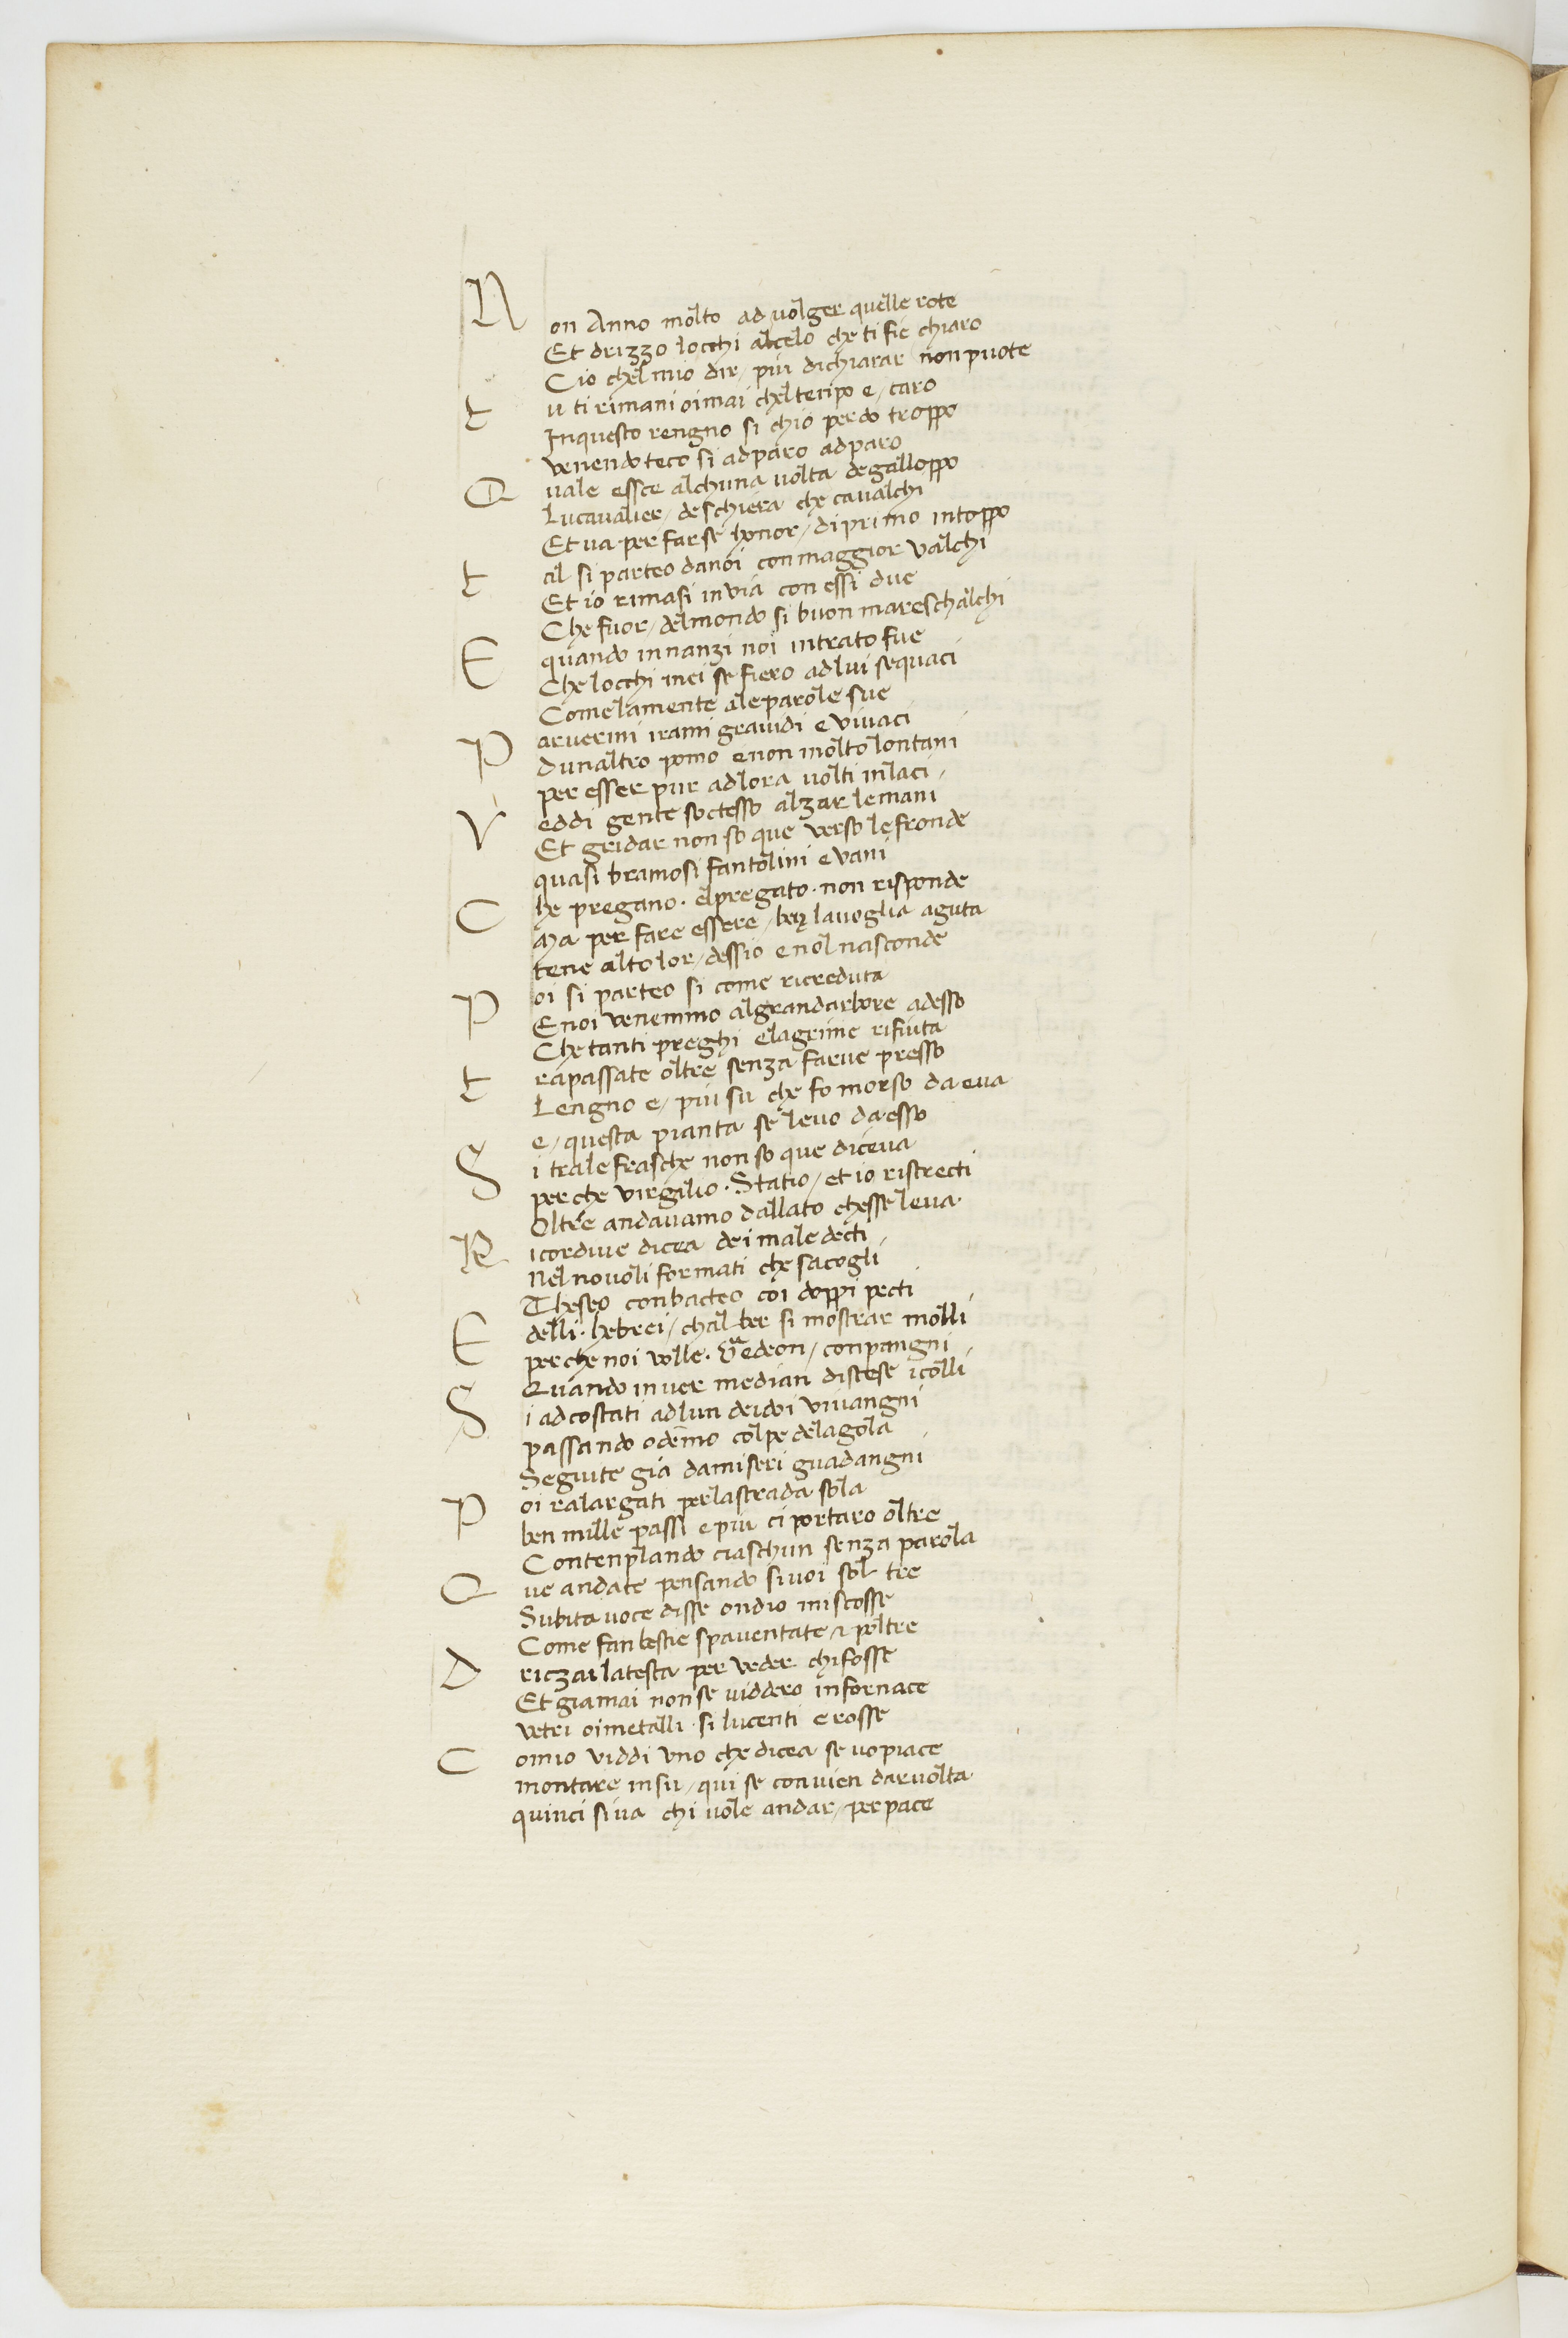 Non Anno molto ad volger quelle rote
Et drizzo locchi alcelo che ti fie chiaro
Cio chel mio dir / piu dichiarar non puote
tu ti rimani oimai chel tenpo e / caro
Inquesto rengno si chio perdo troppo
venendo teco si adparo adparo
Quale essce alchuna volta de galloppo
Lucavalier / de schiera che cavalchi
Et va per far se honor / di primo intoppo
tal si parteo danoi con maggior valchi
Et io rimasi in via con essi due
Che fuor / del mondo si buon mareschalchi
E quando innanzi noi intrato fue
Che locchi mei se fiero ad lui sequaci
Come lamente ale parole sue
Parvermi irami gravidi e vivaci
Dunaltro pomo e non molto lontani
per esser pur ad lora volti inlaci /
Veddi gente soctesso alzar le mani
Et gridar non so que verso le fronde
quasi bramosi fantolini e vani
Che pregano . elpregato . non risponde
Ma per fare essere / ben lavoglia aguta
tene alto lor / dessio e nol nasconde
Poi si parteo si come ricreduta
E noi venemmo al grandarbore adesso
Che tanti preghi elagrime rifiuta
trapassate oltre senza farve presso
Lengno e / piu su che fo morso da eva
e / questa pianta se levo da esso
Si trale frasche non so que diceva
per che virgilio . Statio / et io ristrecti
Oltre andavamo dallato chesse leva
Ricordive dicea dei maledecti
Nel novoli formati che sacogli
Theseo conbacteo coi doppi pecti
E delli . hebrei / chal ber si mostrar molli
perche noi volle . Gedeon / conpangni
Quando in ver median discese icolli
Si adcostati adlun deidoi vivangni
passando odemo colpe delagola
Seguite gia damiseri guadangni
Poi ralargati perlastrada sola
ben mille passi e piu ci portaro oltre
Contenplando ciaschun senza parola
Que andate pensando si voi sol tre
Subita voce disse ondio mi scosse
Come fan bestie spaventate e poltre
Driczai latesta per veder chi fosse
Et giamai non se viddero in fornace
vetri oi metalli . si lucenti e rosse
Comio viddi uno che dicea se vo piace
montare in su / qui se convien dar volta
quinci si va chi vole andar / per pace